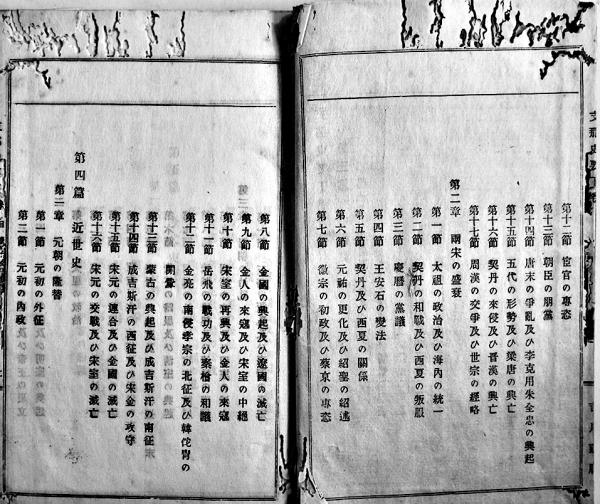 第十二節　宦官の專恣
第十三節　朝臣の朋黨
第十四節　唐末の爭亂及ひ李克用朱全忠の興起
第十五節　五代の形勢及ひ梁唐の興亡
第十六節　契丹の來侵及ひ晉漢の興亡
第十七節　周漢の交爭及ひ世宗の經略
第二章　兩宋の盛衰
第一節　太祖の政治及ひ海內の統一
第二節　契丹の和戰及ひ西夏の叛服
第三節　慶曆の黨議
第四節　王安石の變法
第五節　契丹及ひ西夏の關係
第六節　元祐の更化及ひ紹聖の紹述
第七節　徽宗の初政及ひ蔡京の專恣
第八節　金國の興起及ひ遼國の滅亡
第九節　金人の來寇及ひ宋室の中絕
第十節　宋室の再興及ひ金人の來寇
第十一節　岳飛の戰功及ひ秦檜の和議
第十二節　金亮の南侵孝宗の北征及ひ韓侂冑の
開釁
第十三節　蒙古の興起及ひ成吉斯汗の南征
第十四節　成吉斯汗の西征及ひ宋金の攻守
第十五節　宋元の連合及ひ金國の滅亡
第十六節　宋元の交戰及ひ宋室の滅亡
第四篇　近世史
第一章　元朝の隆替
第一節　元初の外征
第二節　元初の內政